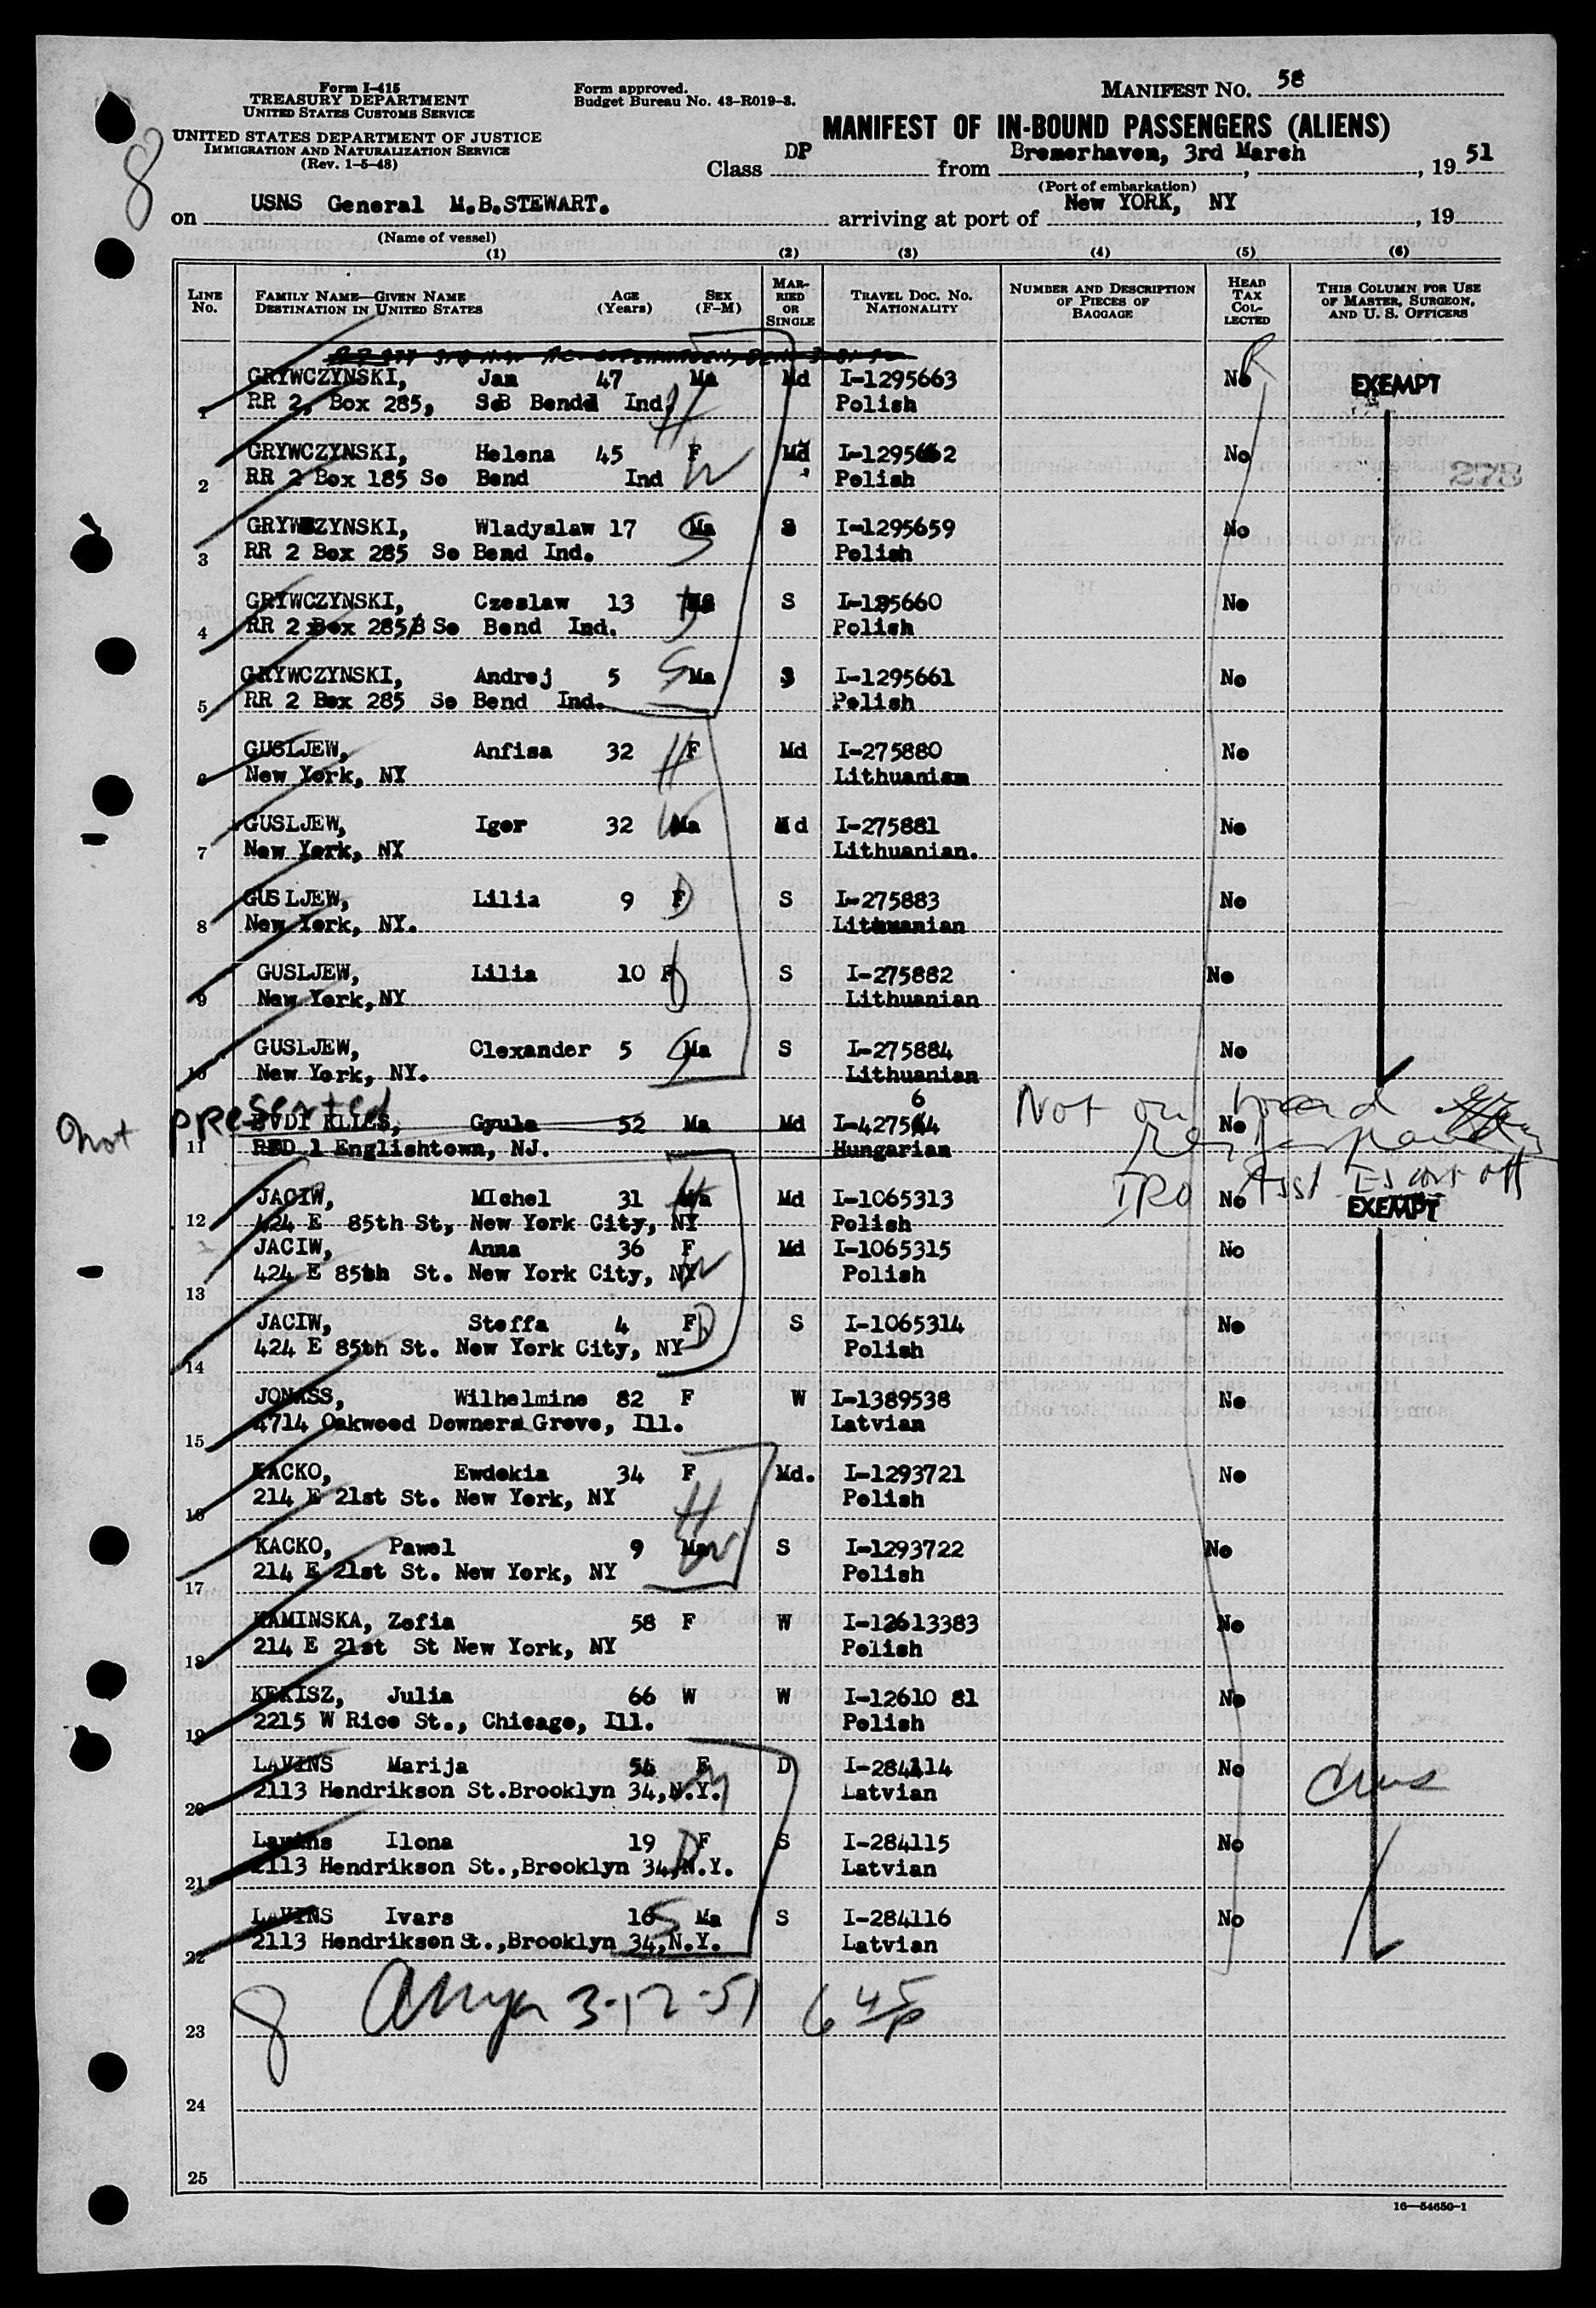 Form I-415
TREASURY DEPARTMENT
UNITED STATES CUSTOMS SERVICE
UNITED STATES DEPARTMENT OF JUSTICE
IMMIGRATION AND NATURALIZATION SERVICE
(Rev. 1-5-48)
Form approved.
Budget Bureau No. 43-R019-3.
MANIFEST NO. 58
MANIFEST OF IN-BOUND PASSENGERS (ALIENS)
8
Class DP from Bremerhaven, 3rd March, 19 51
(Port of embarkation)
on USNS General M.B.STEWART. arriving at port of New YORK, NY, 19
(Name of vessel)
(1) (2) (3) (4) (5) (6)
LINE No. FAMILY NAME—GIVEN NAME DESTINATION IN UNITED STATES AGE (Years) SEX (F-M) MARRIED OR SINGLE TRAVEL DOC. NO. NATIONALITY NUMBER AND DESCRIPTION OF PIECES OF BAGGAGE HEAD TAX COLLECTED THIS COLUMN FOR USE OF MASTER, SURGEON, AND U. S. OFFICERS
GRYWCZYNSKI, Jan 47 Ma Md I-1295663 No EXEMPT
1 RR 2, Box 285, SeB Bendd Ind. H Polish
GRYWCZYNSKI, Helena 45 F Md I-1295662 No
2 RR 2 Box 185 So Bend Ind W Polish 273
GRYWCZYNSKI, Wladyslaw 17 Ma S I-1295659 No
3 RR 2 Box 285 So Bend Ind. S Polish
GRYWCZYNSKI, Czeslaw 13 Ma S I-195660 No
4 RR 2 Box 285B So Bend Ind. S Polish
GRYWCZYNSKI, Andrej 5 S Ma S I-1295661 No
5 RR 2 Box 285 So Bend Ind. Polish
GUSLJEW, Anfisa 32 H F Md I-275880 No
6 New York, NY Lithuanian
GUSLJEW, Igor 32 W Ma Md I-275881 No
7 New York, NY Lithuanian.
GUSLJEW, Lilia 9 F D S I-275883 No
8 New York, NY. Lithuanian
GUSLJEW, Lilia 10 F D S I-275882 No
9 New York,NY Lithuanian
GUSLJEW, Olexander 5 S Ma S I-275884 No
10 New York, NY. Lithuanian
Not presented
Gyula 52 Ma Md I-427564 No Not on board
11 RFD 1 Englishtown, NJ. Hungarian
IRO Asst Escort off
JACIW, MIchel 31 Ma H Md I-1065313 No EXEMPT
12 424 E 85th St, New York City, NY Polish
JACIW, Anna 36 F Md I-1065315 No
13 424 E 85th St. New York City, NY W Polish
JACIW, Steffa 4 F D S I-1065314 No
14 424 E 85th St. New York City, NY Polish
JONASS, Wilhelmine 82 F W I-1389538 No
15 4714 Oakwood Downers Grove, Ill. Latvian
KACKO, Ewdokia 34 F Md. I-1293721 No
16 214 E 21st St. New York, NY H Polish
KACKO, Pawel 9 Ma W S I-1293722 No
17 214 E 21st St. New York, NY Polish
KAMINSKA, Zofia 58 F W I-12613383 No
18 214 E 21st St New York, NY Polish
KEKISZ, Julia 66 W W I-12610 81 No
19 2215 W Rice St., Chicago, Ill. Polish
LAVINS Marija 54 F D I-284114 No
20 2113 Hendrikson St.Brooklyn 34,N.Y. M Latvian
Lavins Ilona 19 D F S I-284115 No
21 2113 Hendrikson St.,Brooklyn 34,N.Y. Latvian
LAVINS Ivars 16 S Ma S I-284116 No
22 2113 Hendrikson St.,Brooklyn 34,N.Y. Latvian
8 3-12-51 6 45 p
23
24
25
16—54650-1